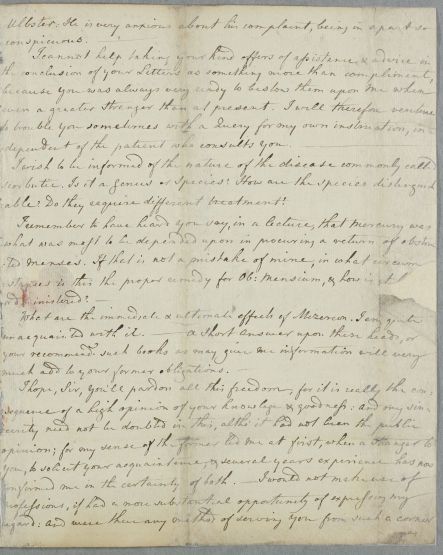 Ulbster: He is very anxious about his complaint, being in a part so
conspicuous.
I cannot help taking your kind offers of assistance & advice in
the conclusion of your Letters as something more than compliment,
because you was always very ready to bestow them upon me when
even a greater Stranger than at present. I will therefore venture
to trouble you sometimes with a Query for my own instruction, in
dependent of the patient who consults you.
I wish to be informed of the nature of the disease commonly call'd
Scorbutic. Is it a genus or Species? How are the species distinguish
able? Do they require different treatment?
I remember to have heard you say, in a lecture, that mercury was
what was most to be depended upon in procuring a return of obstruc
ted menses. If that is not a mistake of mine, in what circum
stances is this the proper remedy for Ob: Mensium, & how is it
administered? —
What are the immediate & ultimate effects of Mezereon. I am quite
unacquainted with it. — A Short answer upon these heads, or
your recommend. such books as may give me information will very
much add to your former obligations. —
I hope, Sir, you'll pardon all this freedom, for it is really the con
sequence of a high opinion of your knowledge & goodness: and my sin
cerity need not be doubted in this, altho it had not been the public
opinion; for my sense of the former led me at first, when a stranger to
you, to solicit your acquaintance, & several years experience has now
confirmed me in the certainty of both. — I would not make use of
professions, if had a more substantial opportunity of expressing my
regard: and were there any method of serving you from such a corner